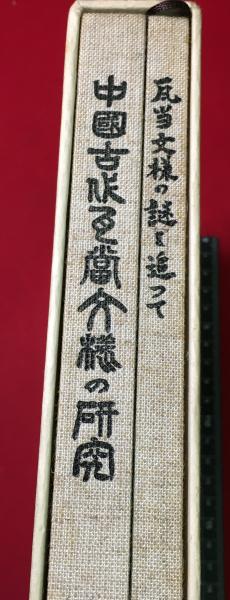 瓦当文様の謎を追つて
中國古代瓦當文様の研究